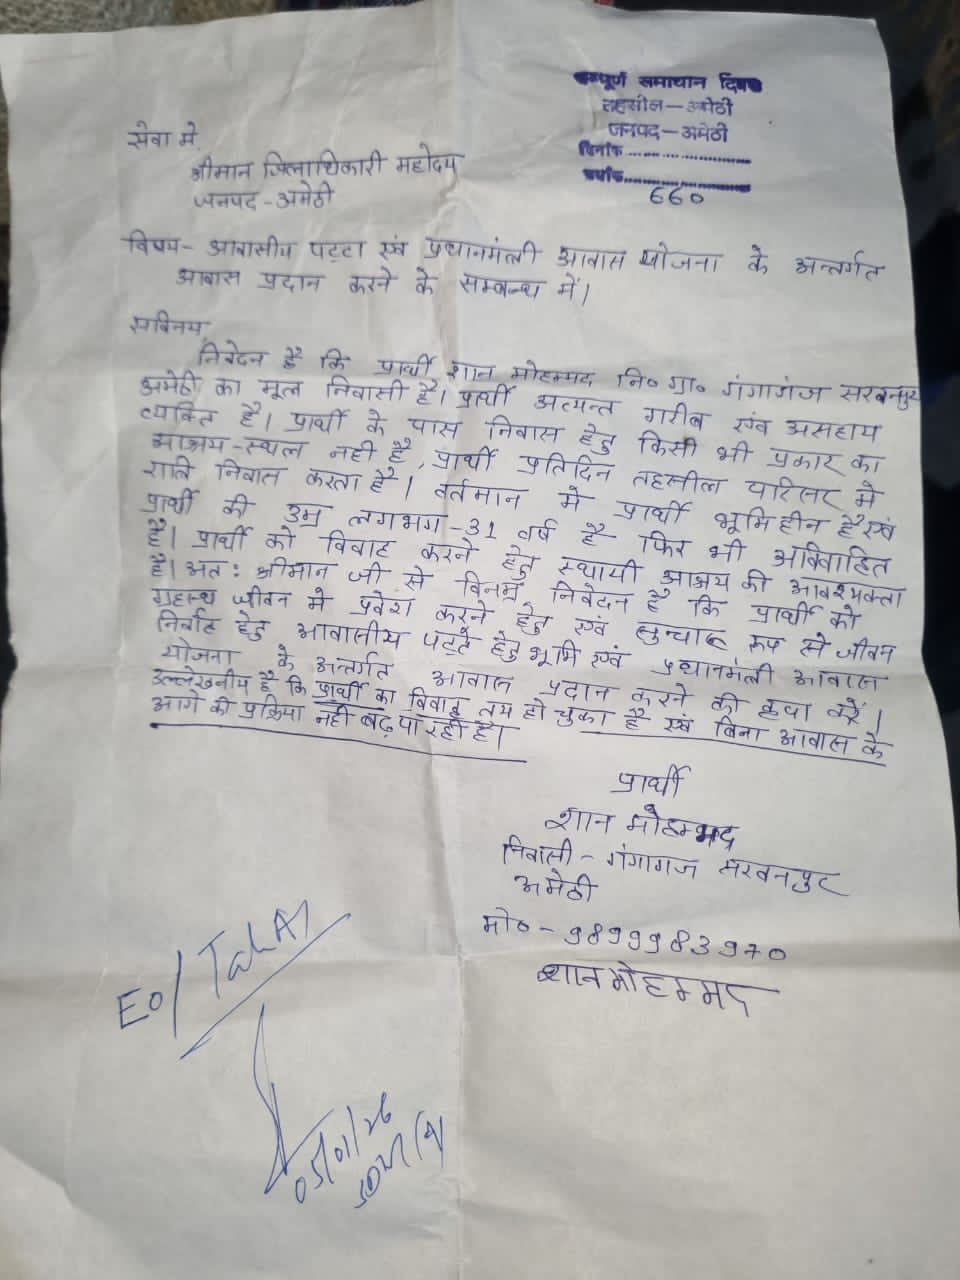 सम्पूर्ण समाधान दिवस
तहसील - अमेठी
जनपद - अमेठी
दिनांक ....................
क्रमांक ....................
660
सेवा में,
श्रीमान जिलाधिकारी महोदय
जनपद - अमेठी
विषय - आवासीय पट्टा एवं प्रधानमंत्री आवास योजना के अन्तर्गत
आवास प्रदान करने के सम्बन्ध में।
सविनय,
निवेदन है कि प्रार्थी शान मोहम्मद नि० ग्रा० गंगागंज सरवनपुर
अमेठी का मूल निवासी है। प्रार्थी अत्यन्त गरीब एवं असहाय
व्यक्ति है। प्रार्थी के पास निवास हेतु किसी भी प्रकार का
आश्रय-स्थल नही है, प्रार्थी प्रतिदिन तहसील परिसर मे
रात्रि निवास करता है। वर्तमान मे प्रार्थी भूमिहीन है एवं
प्रार्थी की उम्र लगभग - 31 वर्ष है फिर भी अविवाहित
है। प्रार्थी को विवाह करने हेतु स्थायी आश्रय की आवश्यकता
है। अत: श्रीमान जी से विनम्र निवेदन है कि प्रार्थी को
ग्रहस्थ जीवन मे प्रवेश करने हेतु एवं सुचारू रूप से जीवन
निर्वाह हेतु आवासीय पट्टे हेतु भूमि एवं प्रधानमंत्री आवास
योजना के अन्तर्गत आवास प्रदान करने की कृपा करें।
उल्लेखनीय है कि प्रार्थी का विवाह तय हो चुका है एवं बिना आवास के
आगे की प्रक्रिया नही बढ़ पा रही है।
प्रार्थी
शान मोहम्मद
निवासी - गंगागंज सरवनपुर
अमेठी
मो० - 9899983970
शान मोहम्मद
EO/
05/01/26